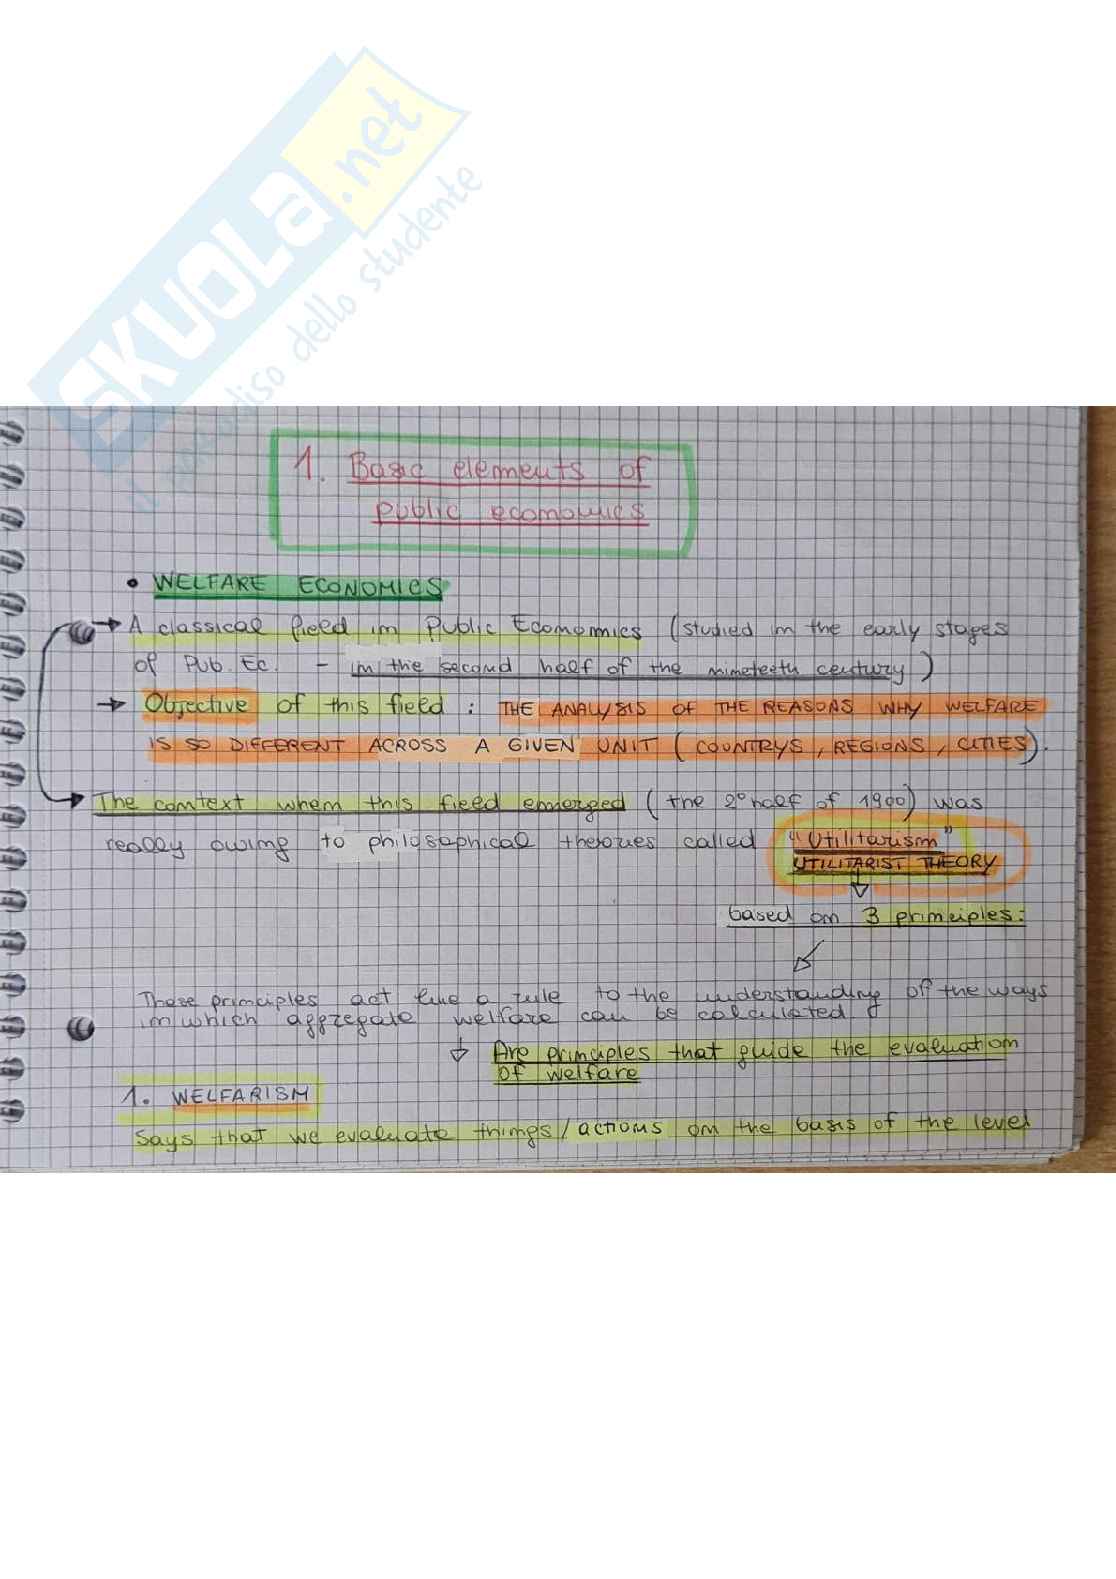 SKUOLA.net
il paradiso dello studente
1. Basic elements of
public economics
• WELFARE ECONOMICS
→ A classical field in Public Economics (studied in the early stages
of Pub. Ec. - in the second half of the nineteeth century)
→ Objective of this field : THE ANALYSIS OF THE REASONS WHY WELFARE
IS SO DIFFERENT ACROSS A GIVEN UNIT (COUNTRYS, REGIONS, CITIES).
→ The context when this field emerged (the 2° half of 1900) was
really owing to philosophical theroies called "Utilitarism"
UTILITARIST THEORY
based on 3 principles:
These principles act like a rule to the understanding of the ways
in which aggregate welfare can be calculated
↓ Are principles that guide the evaluation
of welfare
1. WELFARISM
Says that we evaluate things/actions on the basis of the level